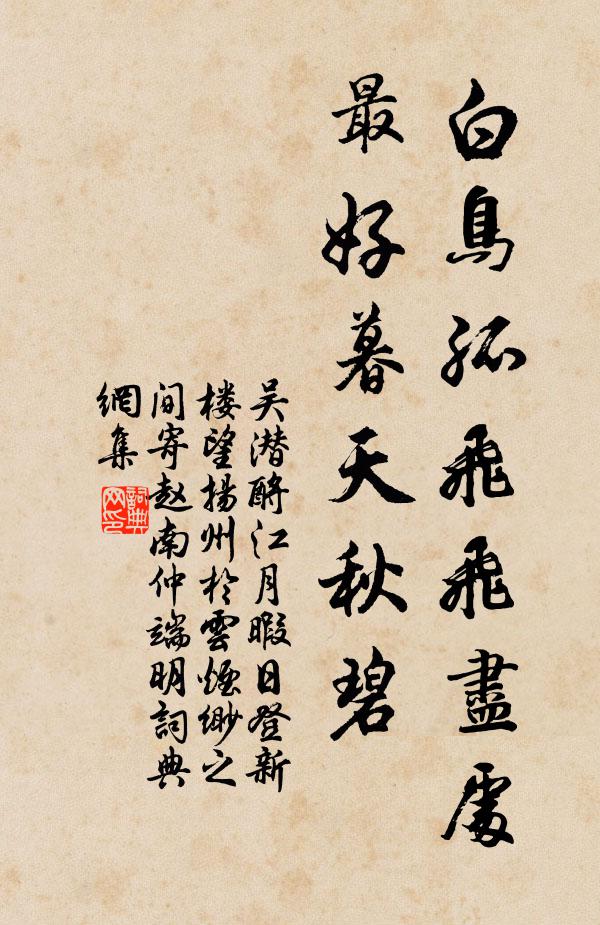 白鳥孤飛飛盡處
最好暮天秋碧
吴潜酹江月暇日登新
楼望揚州於雲煙緲之
间寄赵南仲端明詞典
網集
詞典
网印